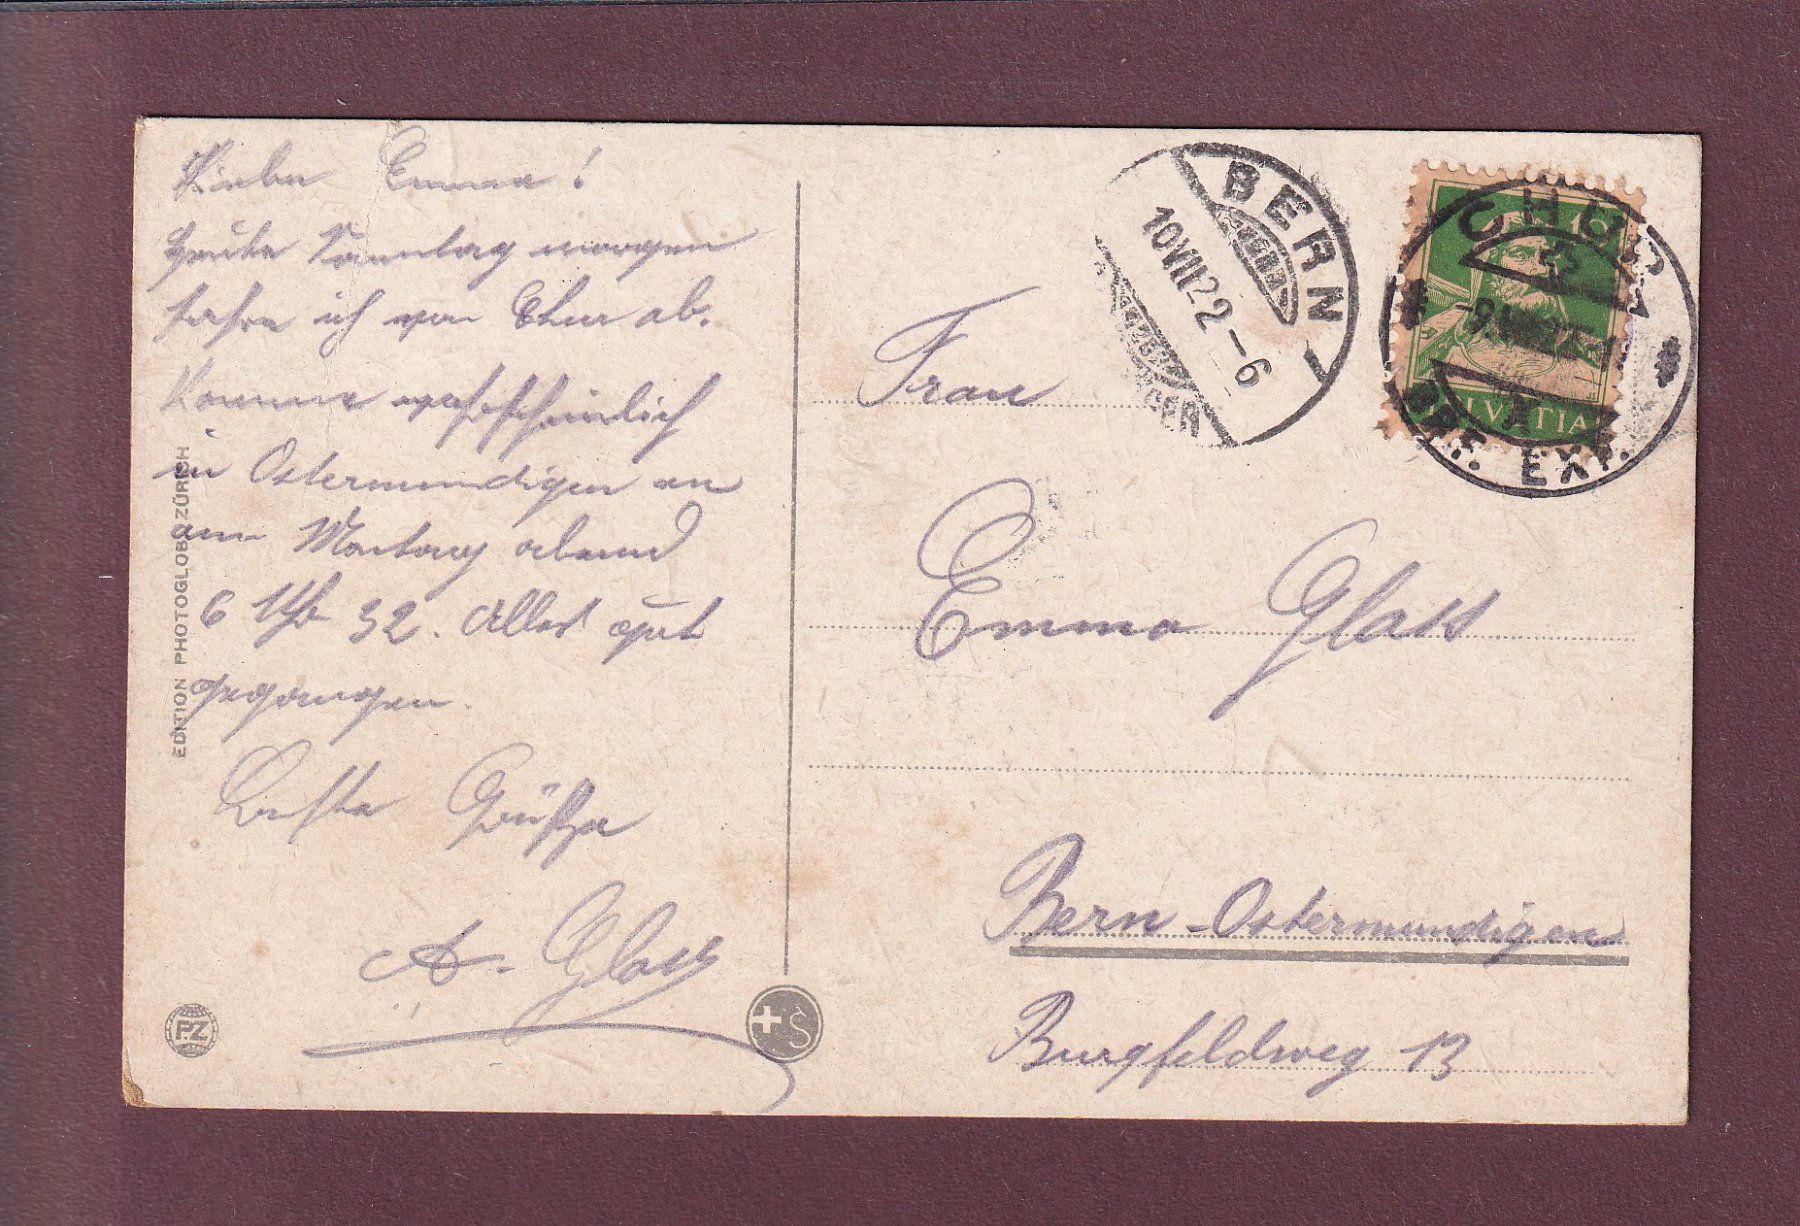 Liebe Emma!
Heute Sonntag morgen
fahre ich von Chur ab.
Komme wahrscheinlich
in Ostermundigen an
am Montag abend
6 Uhr 32. Alles gut
gegangen.
Beste Grüße
A. Glass
EDITION PHOTOGLOB ZÜRICH
P.Z
S
BERN
10.VII.22-6
CHUR 1
-9.
BRF. EXP.
10
HELVETIA
Frau
Emma Glass
Bern-Ostermundigen
Burgfeldweg 13